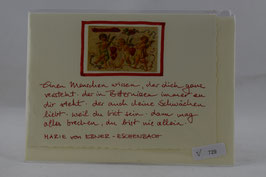 Einen Menschen wissen, der dich ganz
versteht, der in Bitternissen immer zu
dir steht. der auch deine Schwächen
liebt weil du bist sein, dann mag
alles brechen, du bist nie allein.
MARIE VON EBNER-ESCHENBACH